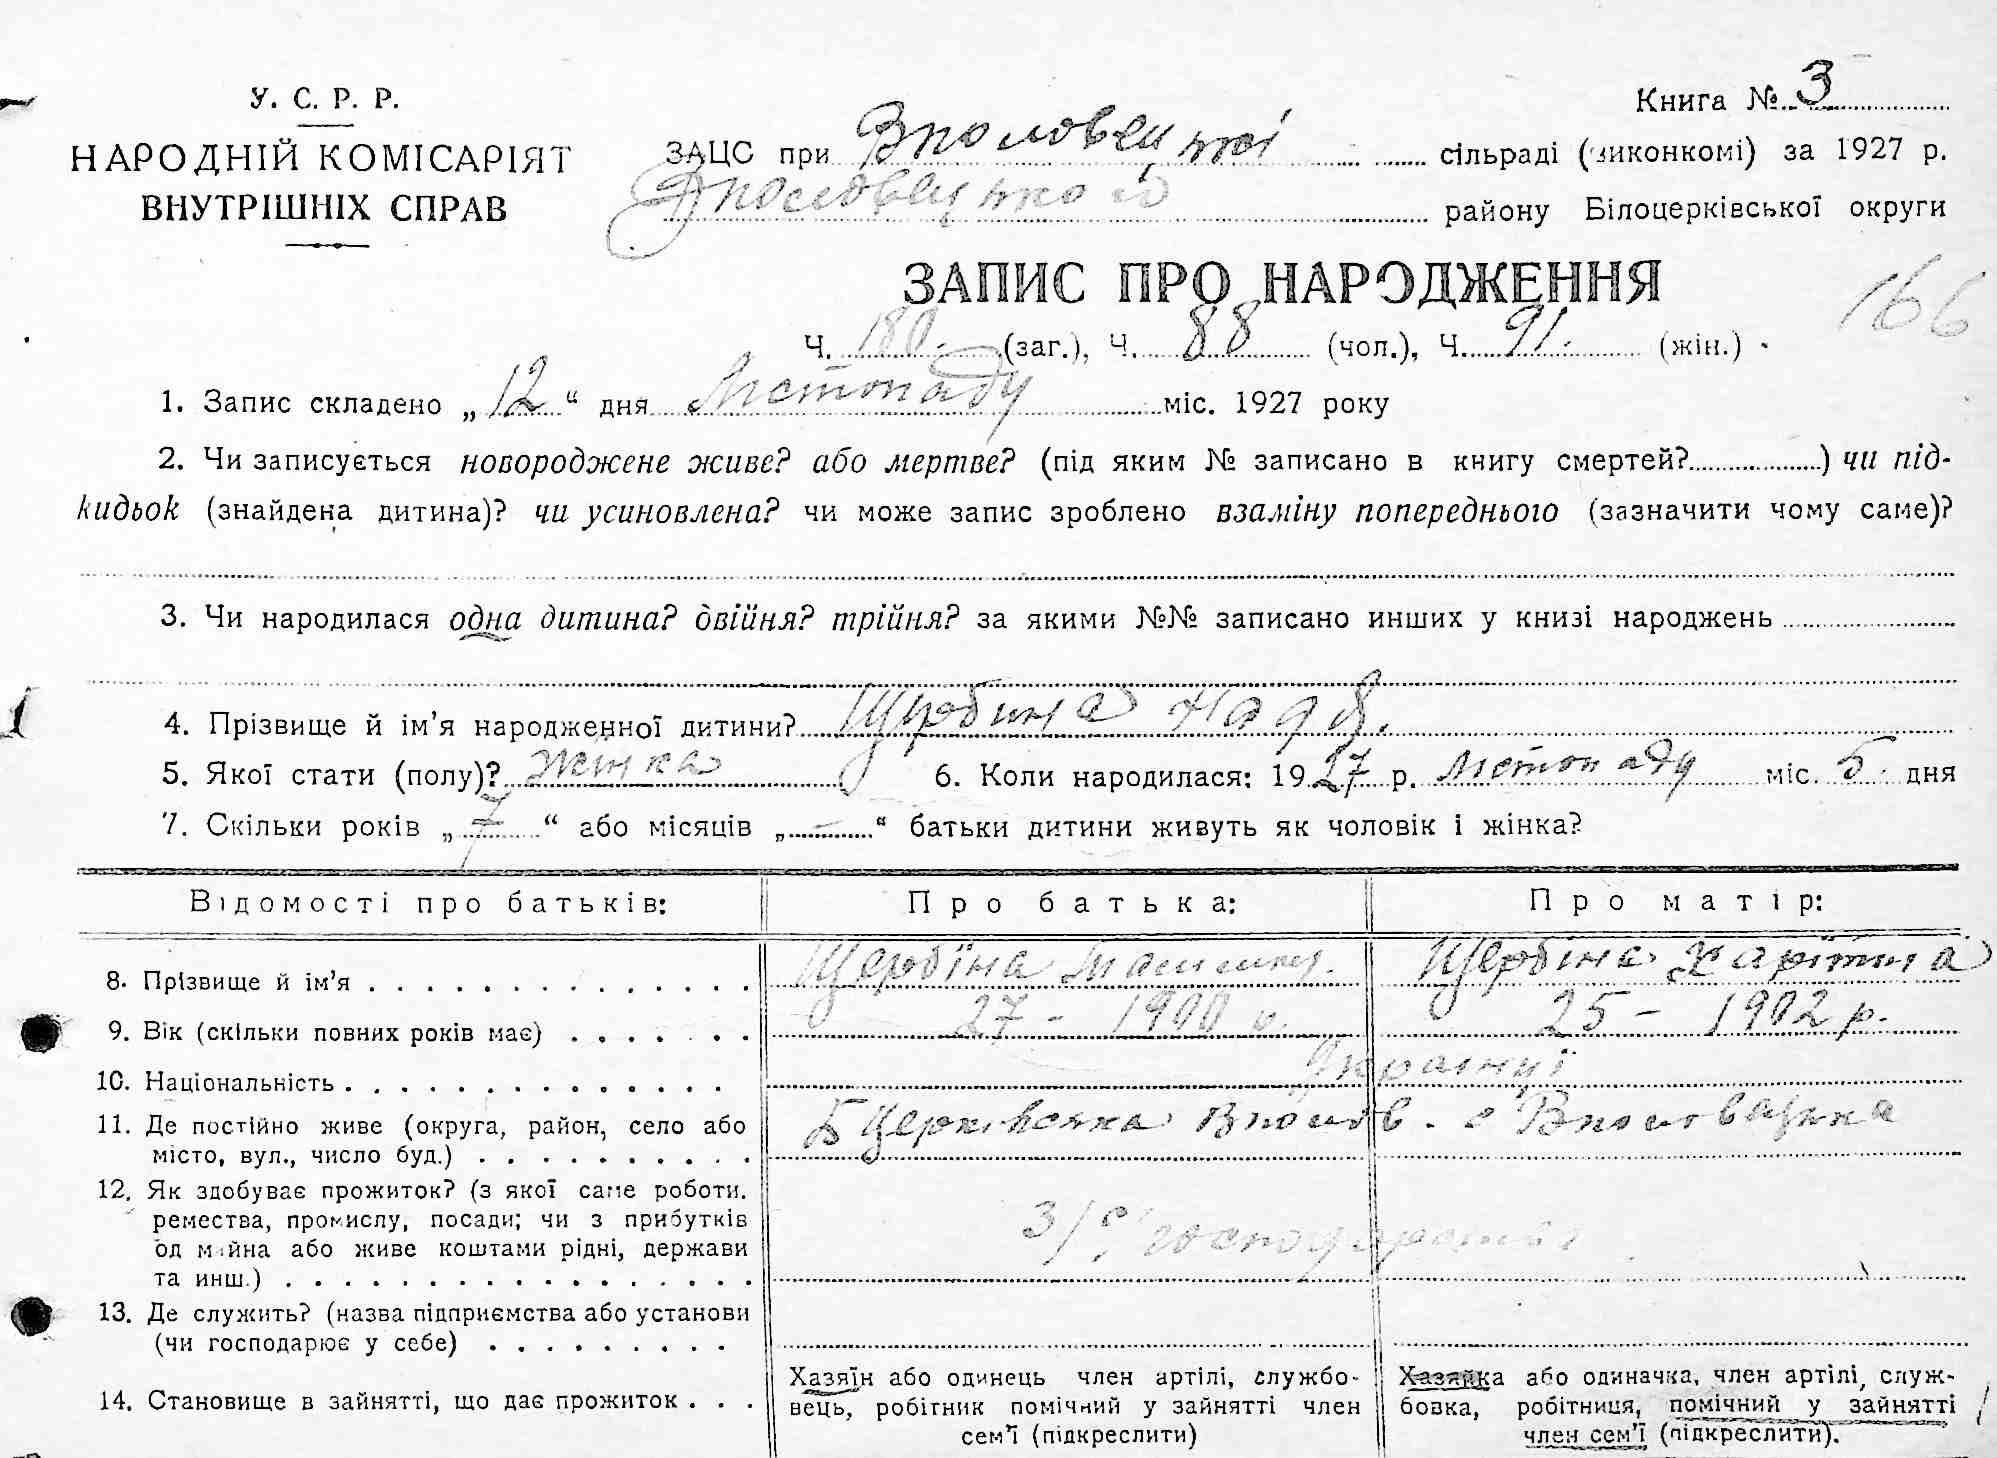 У. С. Р. Р.
НАРОДНІЙ КОМІСАРІЯТ
ВНУТРІШНІХ СПРАВ
Книга № 3
ЗАЦС при Вполовецькі сільраді (виконкомі) за 1927 р.
Вполовецького району Білоцерківської округи
ЗАПИС ПРО НАРОДЖЕННЯ
166
Ч. 180. (заг.), Ч. 88 (чол.), Ч. 91. (жін.)
1. Запис складено „12“ дня Листопаду міс. 1927 року
2. Чи записується новороджене живе? або мертве? (під яким № записано в книгу смертей?) чи під-
кидьок (знайдена дитина)? чи усиновлена? чи може запис зроблено взаміну попереднього (зазначити чому саме)?
3. Чи народилася одна дитина? двійня? трійня? за якими №№ записано инших у книзі народжень
4. Прізвище й ім’я народженної дитини? Щербина Надя.
5. Якої стати (полу)? жінка 6. Коли народилася: 1927 р. листопаду міс. 5 дня
7. Скільки років „7“ або місяців „–“ батьки дитини живуть як чоловік і жінка?
Відомості про батьків: Про батька: Про матір:
8. Прізвище й ім’я Щербіна Щербіна Харітина
9. Вік (скільки повних років має) 27 – 1900 р. 25 – 1902 р.
10. Національність Українці
11. Де постійно живе (округа, район, село або
місто, вул., число буд.) Б Церківська Вполов. с Вполовецька
12. Як здобуває прожиток? (з якої саме роботи.
ремества, промислу, посади; чи з прибутків
од майна або живе коштами рідні, держави
та инш.) З/с господарства
13. Де служить? (назва підприємства або установи
(чи господарює у себе)
14. Становище в зайнятті, що дає прожиток
Хазяїн або одинець член артілі, службо-
вець, робітник помічний у зайнятті член
сем’ї (підкреслити)
Хазяйка або одиначка, член артілі, служ-
бовка, робітниця, помічний у зайнятті
член сем’ї (підкреслити).